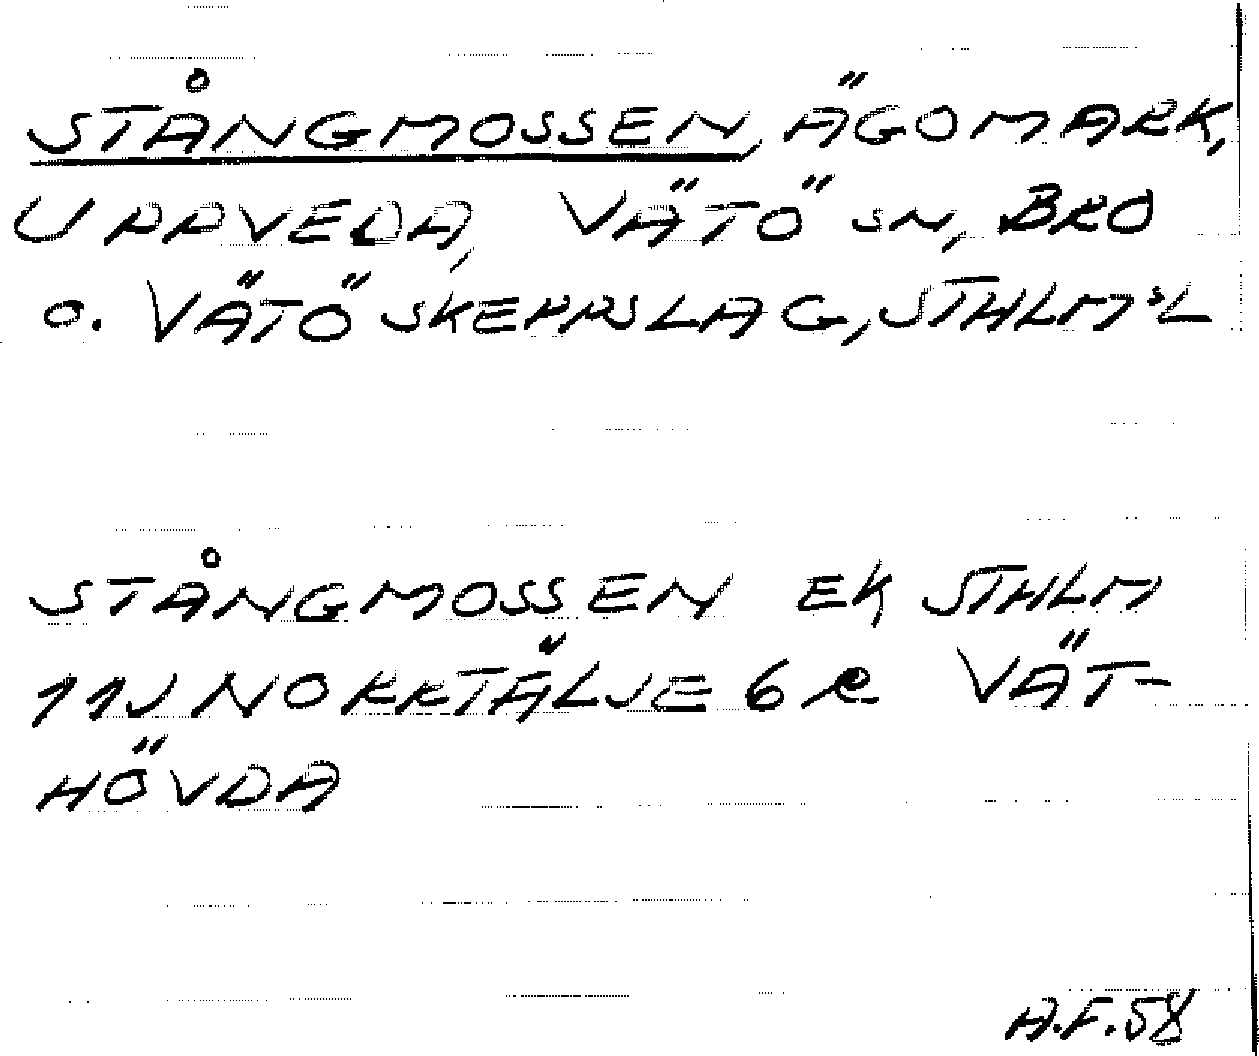 STÅNGMOSSEN, ÄGOMARK,
UPPVEDA, VÄTÖ SN, BRO
O. VÄTÖ SKEPPSLAG, STHLM'SL
STÅNGMOSSEN EK STHLM
11J NORRTÄLJE 6 R VÄT-
HÖVDA
A.F. 58